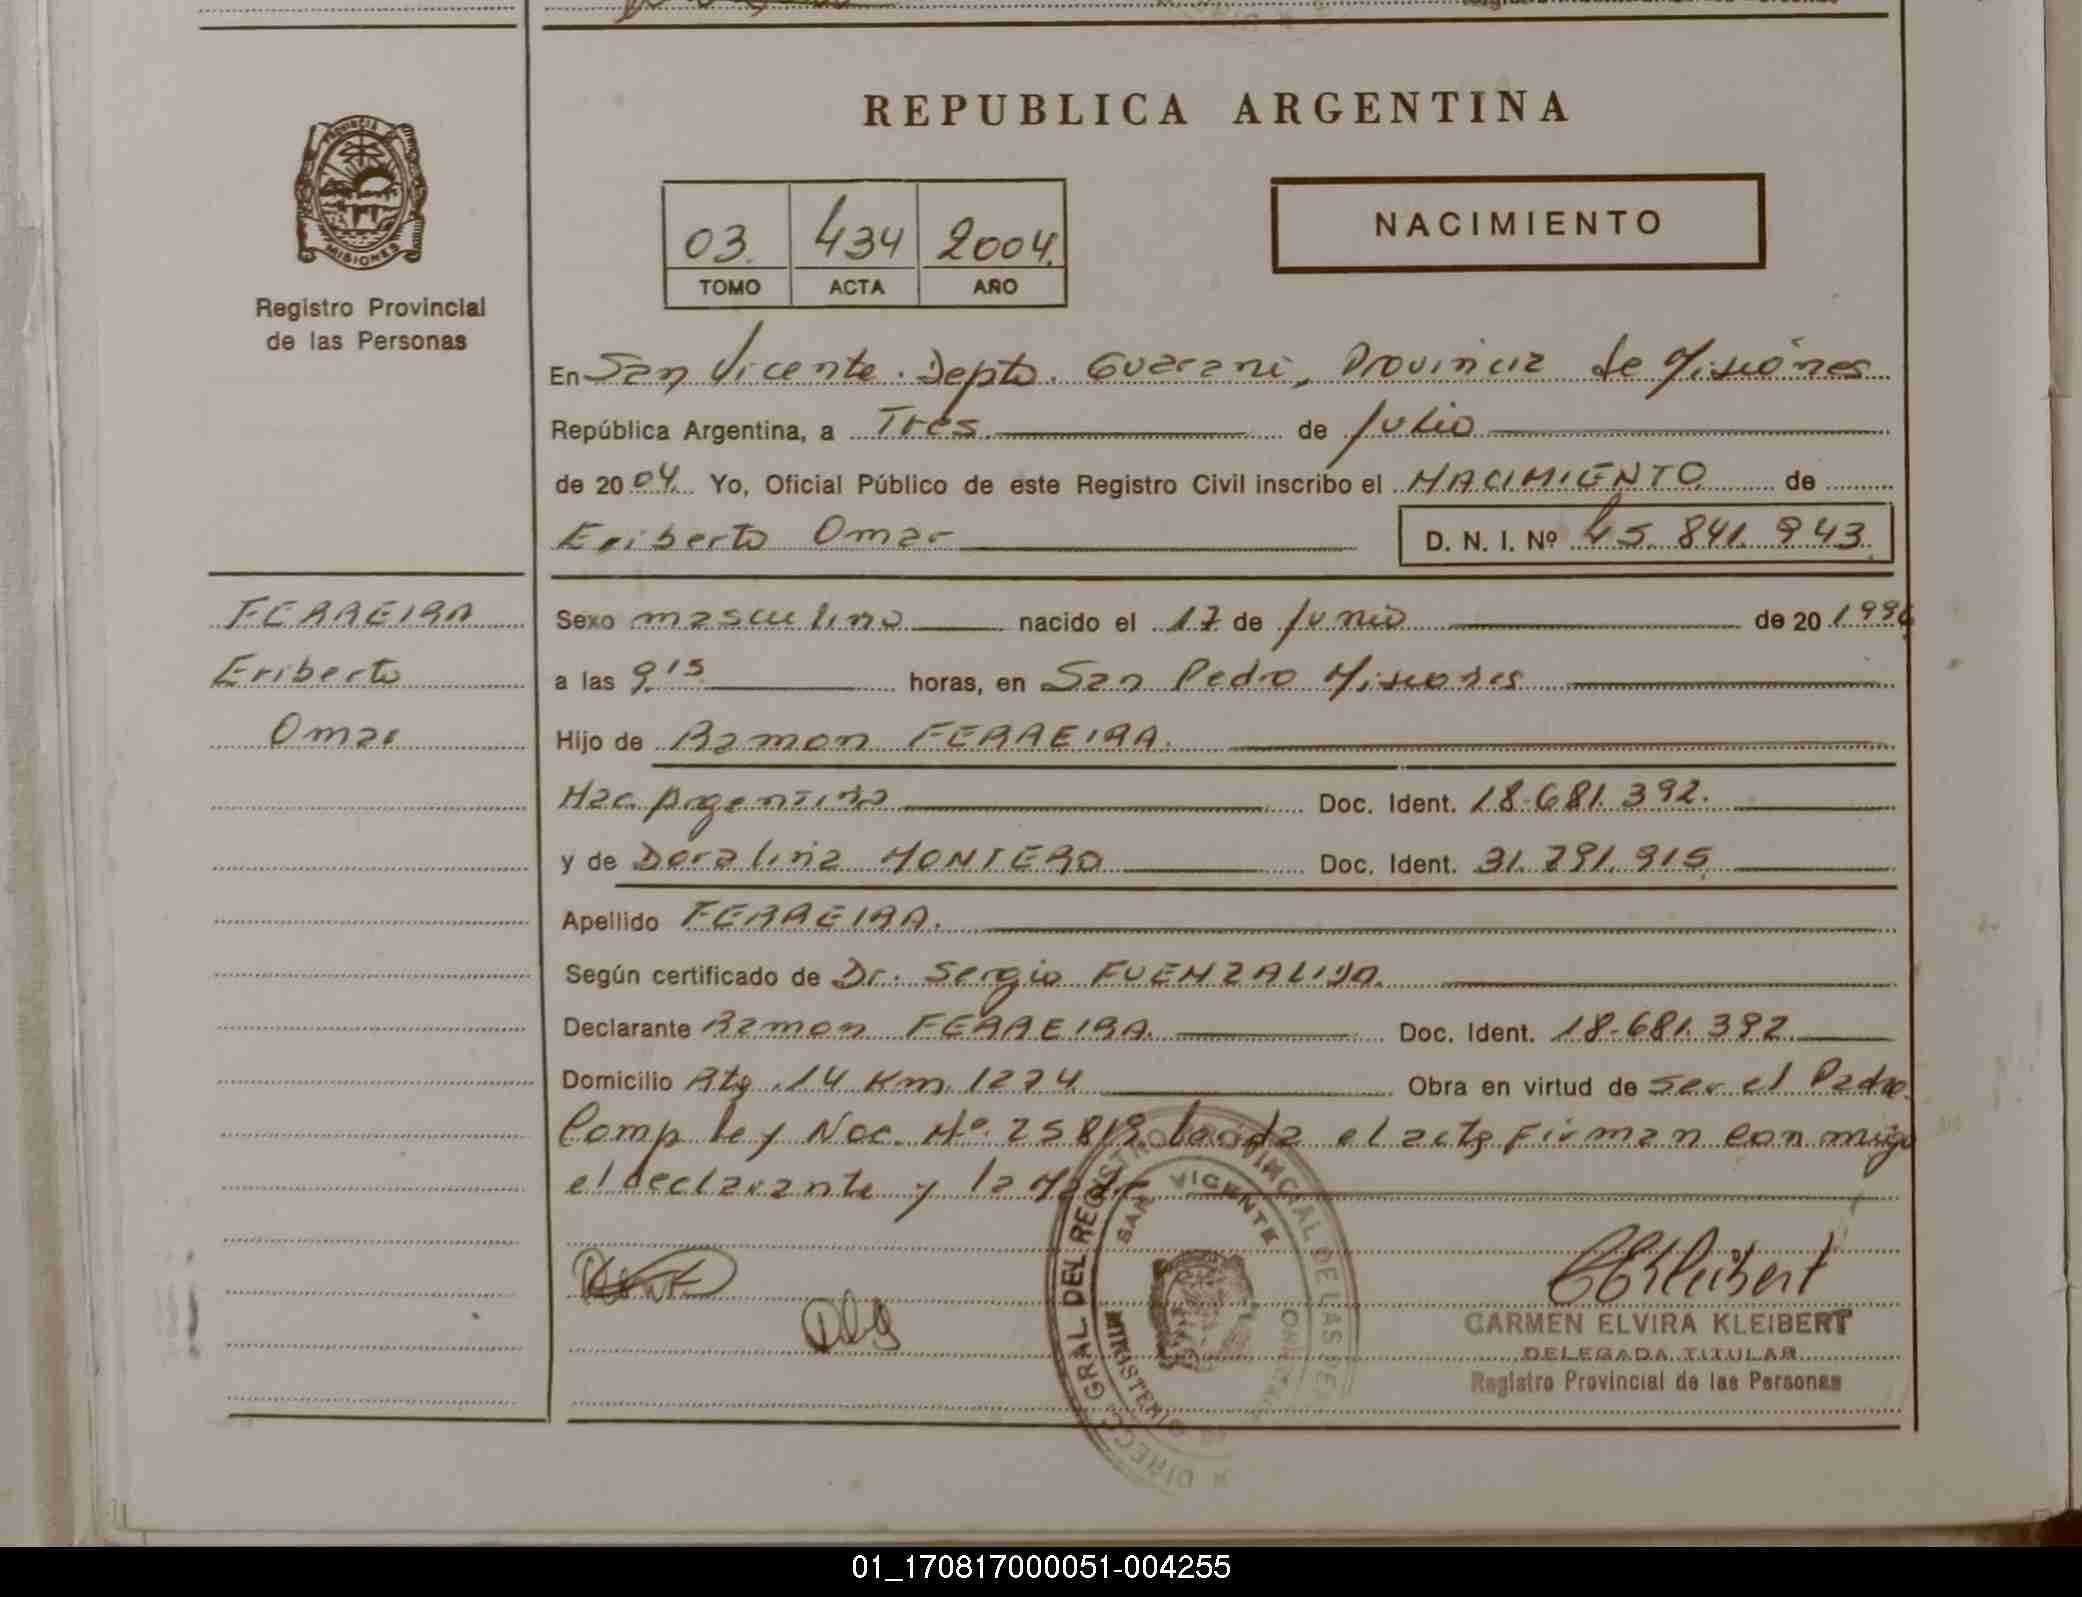 REPUBLICA ARGENTINA
PROVINCIA DE MISIONES
Registro Provincial
de las Personas
03 434 2004
TOMO ACTA AÑO
NACIMIENTO
En San Vicente. Depto. Guarani, Provincia de Misiones
República Argentina, a Tres de Julio
de 2004. Yo, Oficial Público de este Registro Civil inscribo el NACIMIENTO de
Eriberto Omar D. N. I. Nº 45.841.943
FERREIRA
Eriberto
Omar
Sexo masculino nacido el 17 de Junio de 20 1996
a las 9,15 horas, en San Pedro Misiones
Hijo de Ramon FERREIRA.
Nac. Argentina Doc. Ident. 18.681.392.
y de Doralina MONTERO Doc. Ident. 31.791.915
Apellido FERREIRA.
Según certificado de Dr. Sergio FUENZALIDA.
Declarante Ramon FERREIRA. Doc. Ident. 18.681.392.
Domicilio Rta. 14 Km. 1274 Obra en virtud de ser el Padre.
Comp. ley Nac. Nº 25819 leida el acta firman conmigo
el declarante y la Madre
DIRECC. GRAL DEL REGISTRO PROVINCIAL DE LAS PER
SAN VICENTE
MINISTERIO
CEKleibert
CARMEN ELVIRA KLEIBERT
DELEGADA TITULAR
Registro Provincial de las Personas
01_170817000051-004255